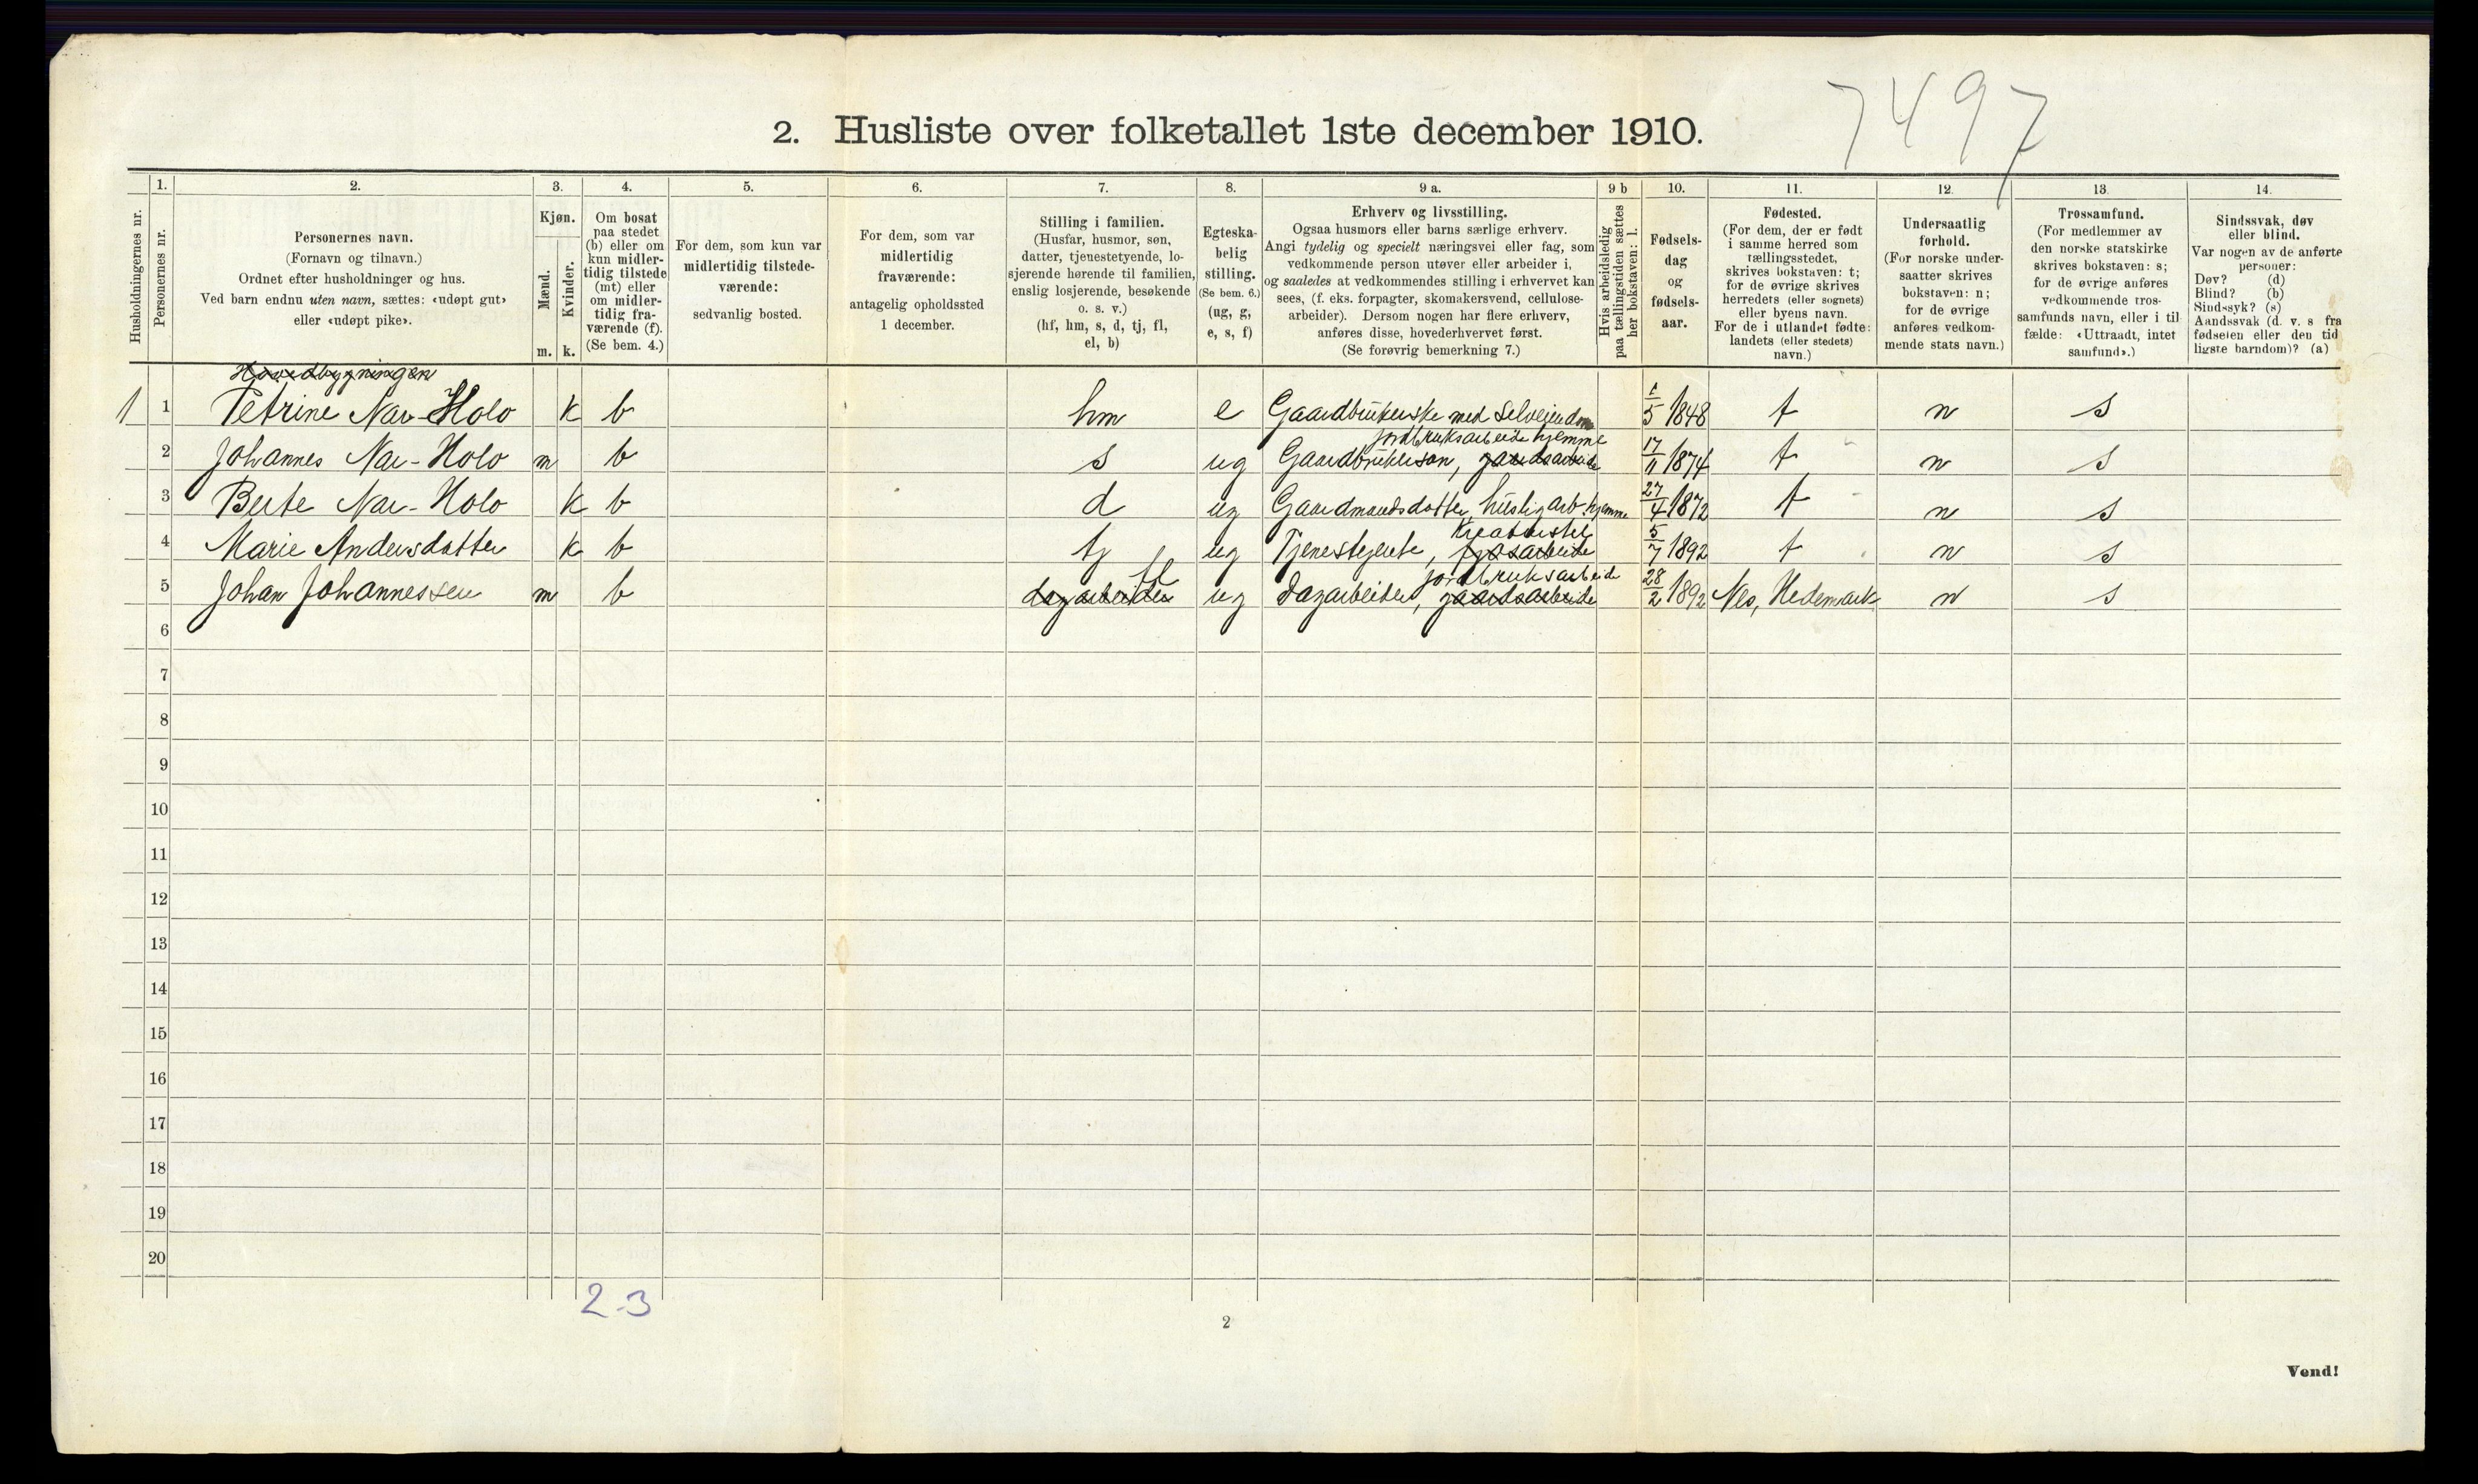 7497
2. Husliste over folketallet 1ste december 1910.
Husholdningernes nr.
1.
Personernes nr.
2.
Personernes navn.
(Fornavn og tilnavn.)
Ordnet efter husholdninger og hus.
Ved barn endnu uten navn, sættes: «udøpt gut»
eller «udøpt pike».
3.
Kjøn.
Mænd.
Kvinder.
m. k.
4.
Om bosat
paa stedet
(b) eller om
kun midler-
tidig tilstede
(mt) eller
om midler-
tidig fra-
værende (f).
(Se bem. 4.)
5.
For dem, som kun var
midlertidig tilstede-
værende:
sedvanlig bosted.
6.
For dem, som var
midlertidig
fraværende:
antagelig opholdssted
1 december.
7.
Stilling i familien.
(Husfar, husmor, søn,
datter, tjenestetyende, lo-
sjerende hørende til familien,
enslig losjerende, besøkende
o. s. v.)
(hf, hm, s, d, tj, fl,
el, b)
8.
Egteska-
belig
stilling.
(Se bem. 6.)
(ug, g,
e, s, f)
9 a.
Erhverv og livsstilling.
Ogsaa husmors eller barns særlige erhverv.
Angi tydelig og specielt næringsvei eller fag, som
vedkommende person utøver eller arbeider i,
og saaledes at vedkommendes stilling i erhvervet kan
sees, (f. eks. forpagter, skomakersvend, cellulose-
arbeider). Dersom nogen har flere erhverv,
anføres disse, hovederhvervet først.
(Se forøvrig bemerkning 7.)
9 b
Hvis arbeidsledig
paa tællingstiden sættes
her bokstaven: l.
10.
Fødsels-
dag
og
fødsels-
aar.
11.
Fødested.
(For dem, der er født
i samme herred som
tællingsstedet,
skrives bokstaven: t;
for de øvrige skrives
herredets (eller sognets)
eller byens navn.
For de i utlandet fødte:
landets (eller stedets)
navn.)
12.
Undersaatlig
forhold.
(For norske under-
saatter skrives
bokstaven: n;
for de øvrige
anføres vedkom-
mende stats navn.)
13.
Trossamfund.
(For medlemmer av
den norske statskirke
skrives bokstaven: s;
for de øvrige anføres
vedkommende tros-
samfunds navn, eller i til-
fælde: «Uttraadt, intet
samfund».)
14.
Sindssvak, døv
eller blind.
Var nogen av de anførte
personer:
Døv? (d)
Blind? (b)
Sindssyk? (s)
Aandssvak (d. v. s. fra
fødselen eller den tid-
ligste barndom)? (a)
Hovedbygningen
1 1 Petrine Nar-Holo k b hm e Gaardbrukerske med Selveiendom 1/5 1848 t n s
jordbruksarbeide hjemme
2 Johannes Nar-Holo m b s ug Gaardbrukerson, gaardsarbeide 17/11 1874 t n s
3 Berte Nar-Holo k b d ug Gaardmandsdatter, huslig arb. hjemme 27/4 1872 t n s
Kreaturstel
4 Marie Andersdatter k b tj ug Tjenestejente, fjøsarbeide 5/7 1892 t n s
fl jordbruksarbeide
5 Johan Johannessen m b dagarbeider ug Dagarbeider, gaardsarbeide 28/2 1892 Nes, Hedemark n s
6
7
8
9
10
11
12
13
14
15
16
17
18
19
20
2-3
2
Vend!